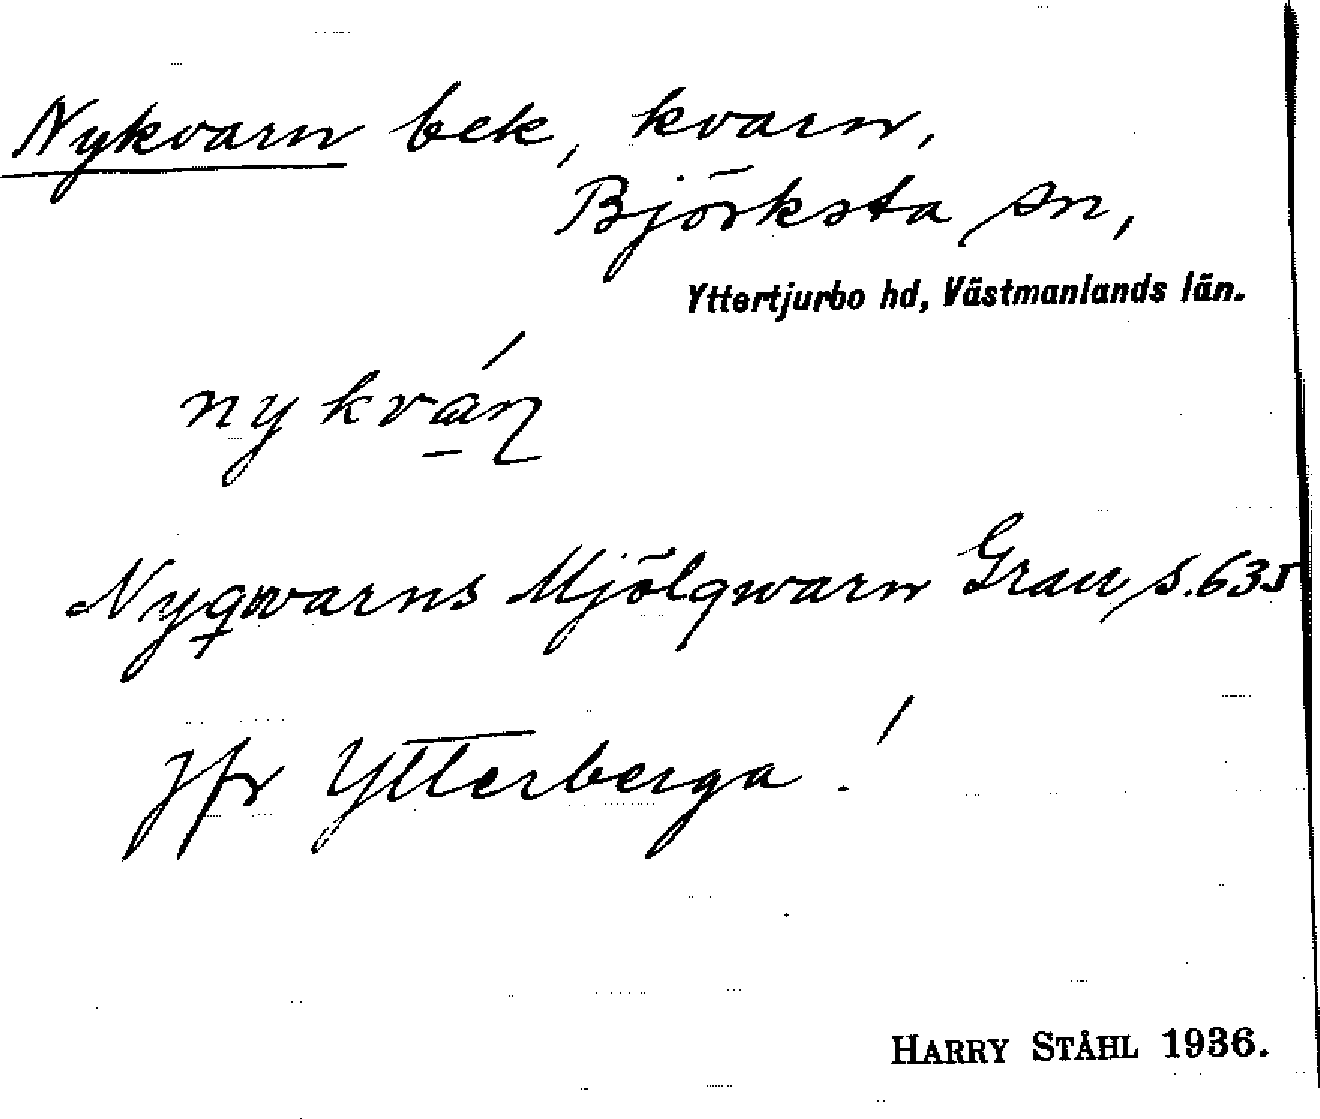 Nykvarn bek, kvarn,
Björksta sn,
Yttertjurbo hd, Västmanlands län.
nykván
Nyqwarns Mjölqwarn Grau s. 635
Jfr Ytterberga!
HARRY STÅHL 1936.